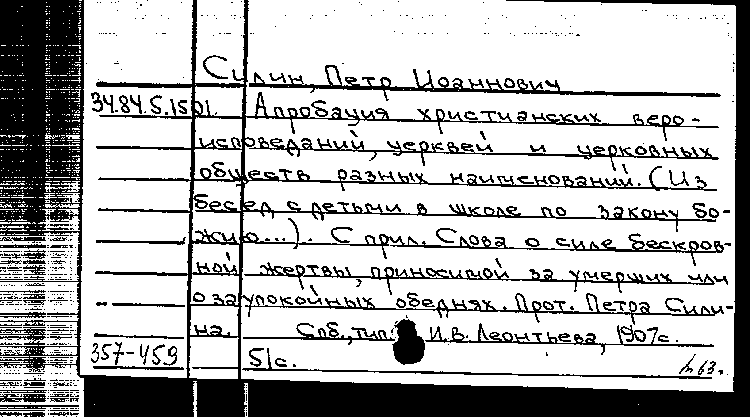 Силин, Петр Иоаннович
34.84.5.1501. Апробация христианских веро-
исповеданий, церквей и церковных
обществ разных наименований. (Из
бесед с детьми в школе по закону бо-
жию...). С прил. Слова о силе бескров-
ной жертвы, приносимой за умерших или
о заупокойных обеднях. Прот. Петра Сили-
на. Спб., тип. И.В. Леонтьева, 1907с.
357-459 51с.